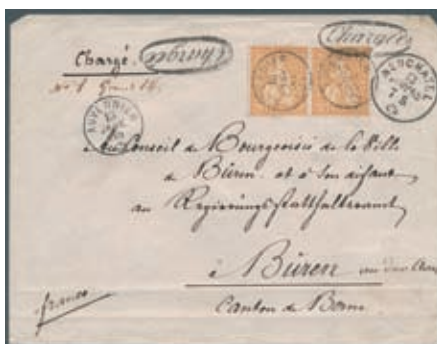 Chargé.
Chargée
Chargée
No 8
AUVERNIER
NEUCHATEL
Au Conseil de Bourgeoisie de la Ville
de Büren et à son défaut
au Regierungsstatthalteramt
à Büren
Canton de Berne
franco